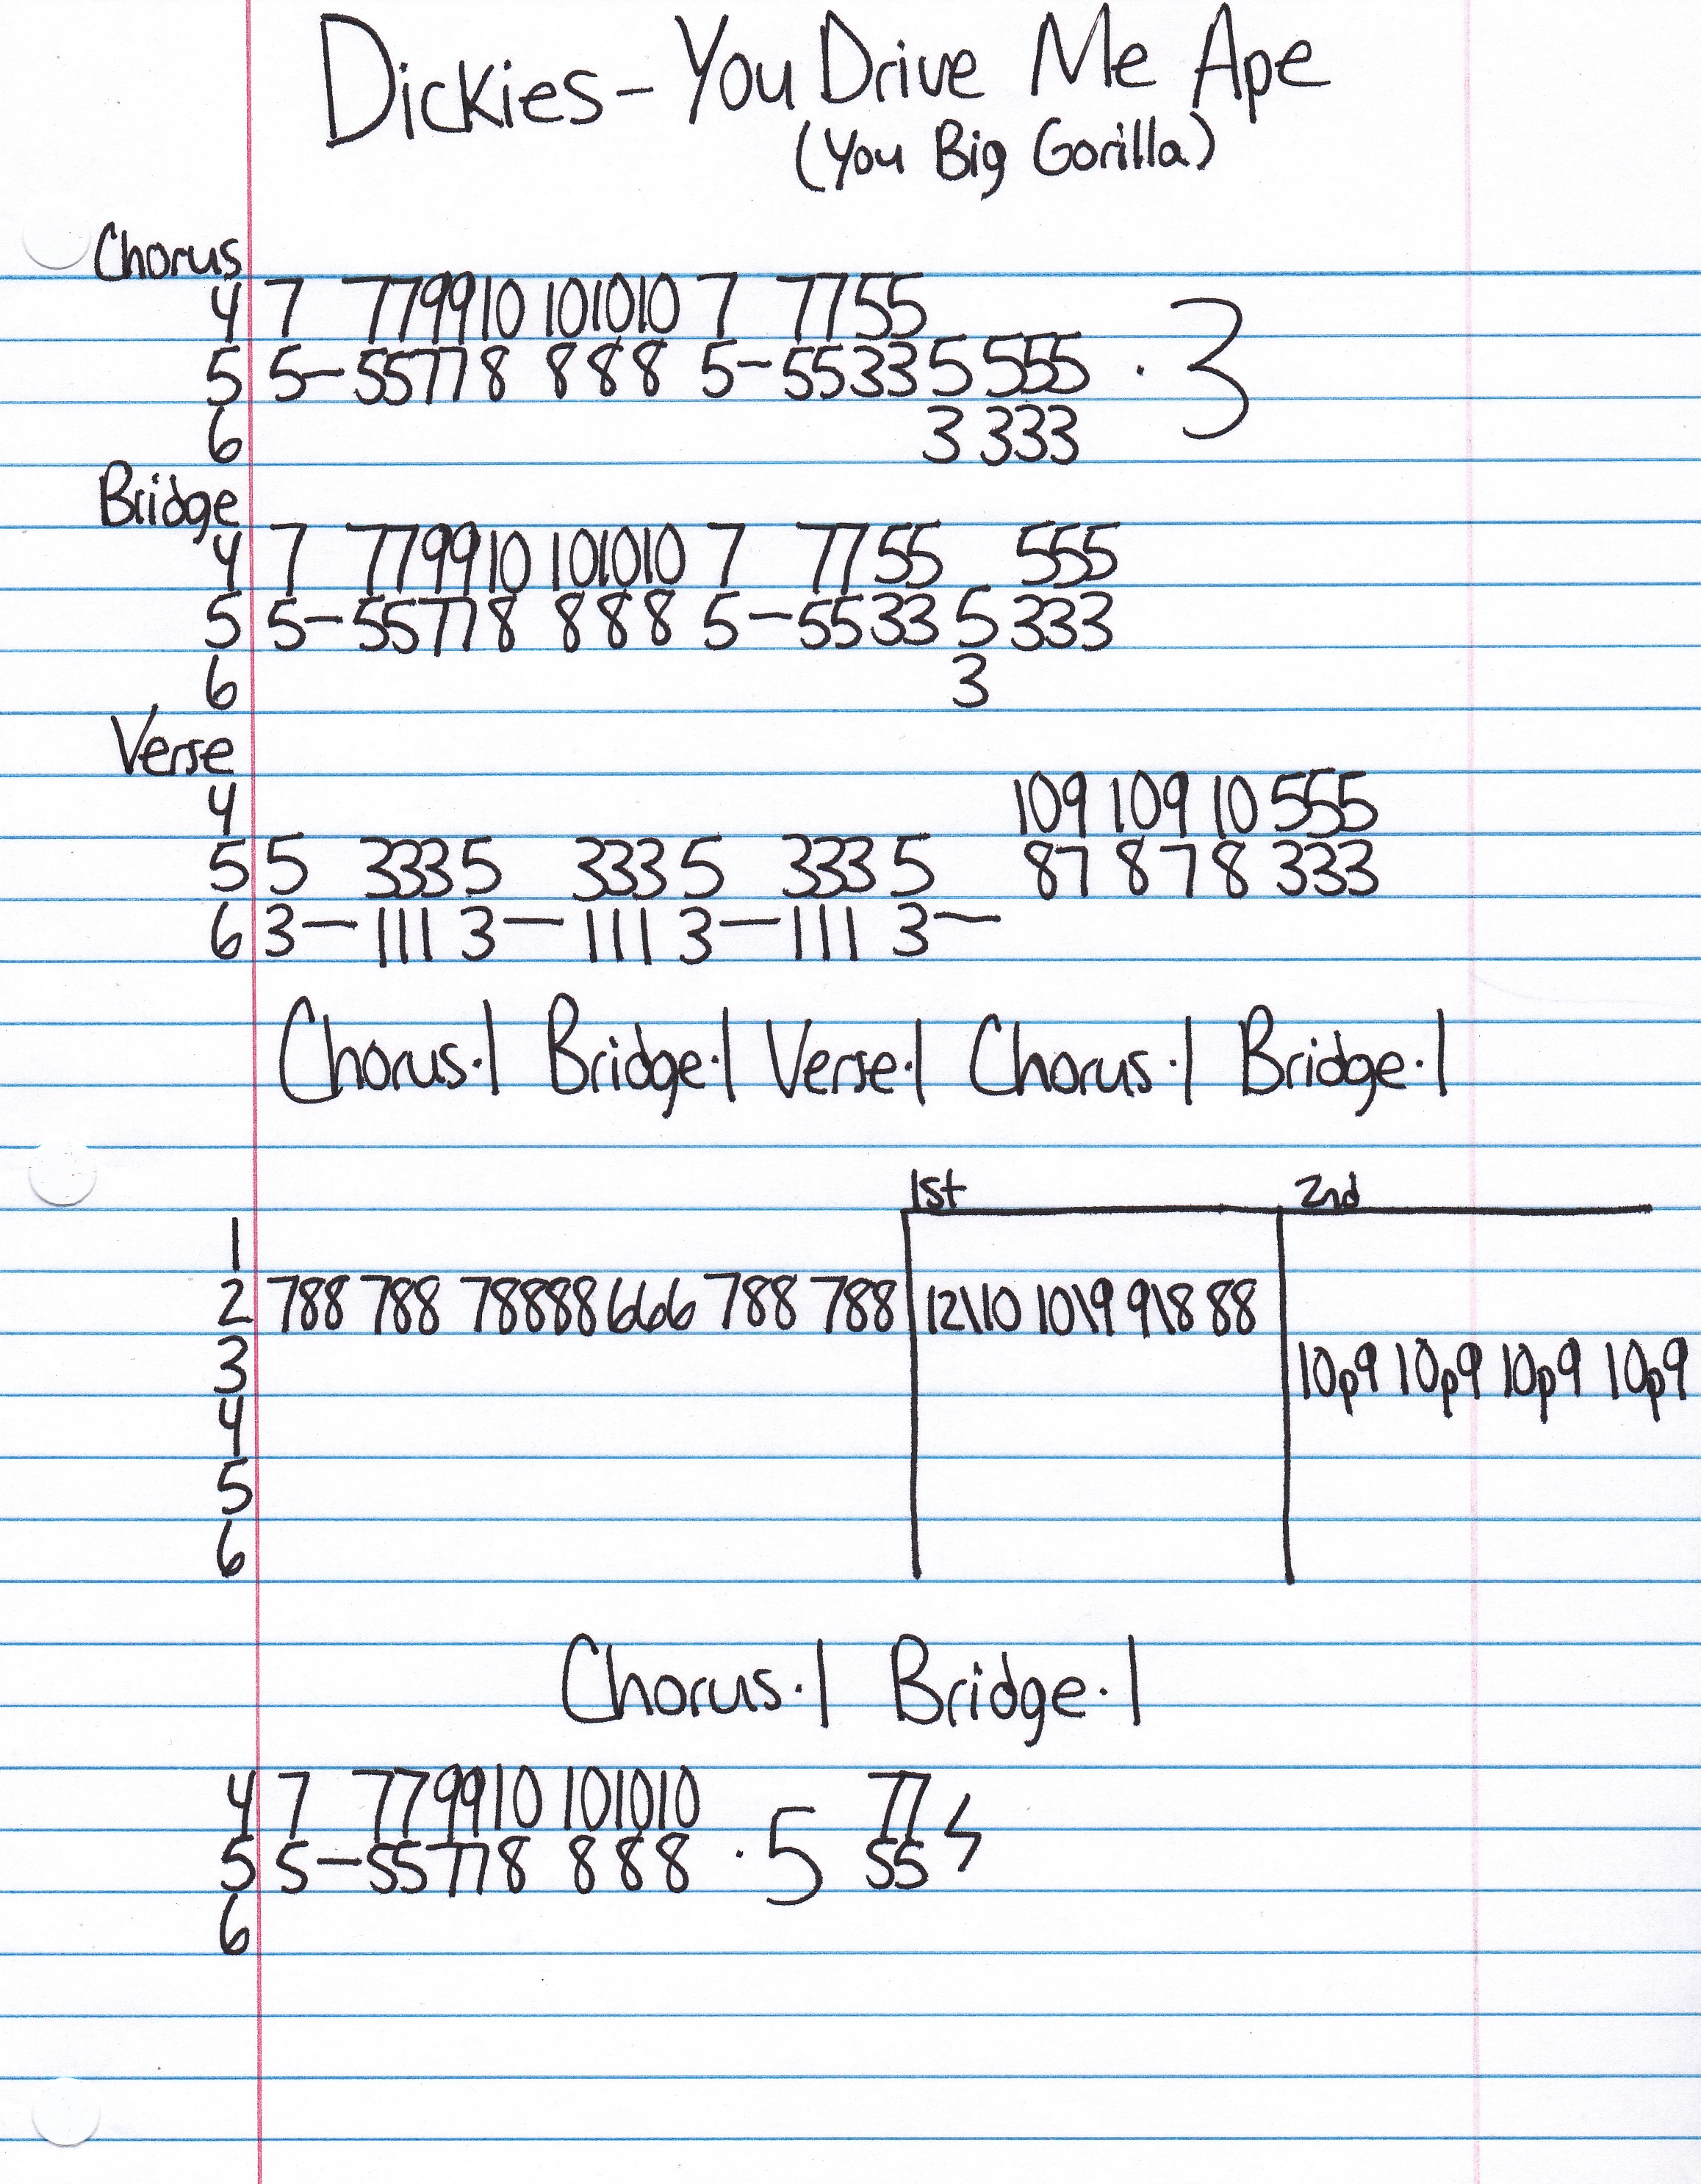 Dickies - You Drive Me Ape
(You Big Gorilla)
Chorus
4 7 779910 101010 7 7755
5 5-55778 888 5-5533 5 555 · 3
6 3 333
Bridge
4 7 779910 101010 7 7755 555
5 5-55778 888 5-5533 5 333
6 3
Verse
4 109 109 10 555
5 5 333 5 333 5 333 5 87 878 333
6 3-111 3-111 3-111 3-
Chorus·1 Bridge·1 Verse·1 Chorus·1 Bridge·1
1st 2nd
1
2 788 788 78888666 788 788 12\10 10\9 9\8 88
3 10p9 10p9 10p9 10p9
4
5
6
Chorus·1 Bridge·1
4 7 779910 101010 77
5 5-55778 888 · 5 55
6